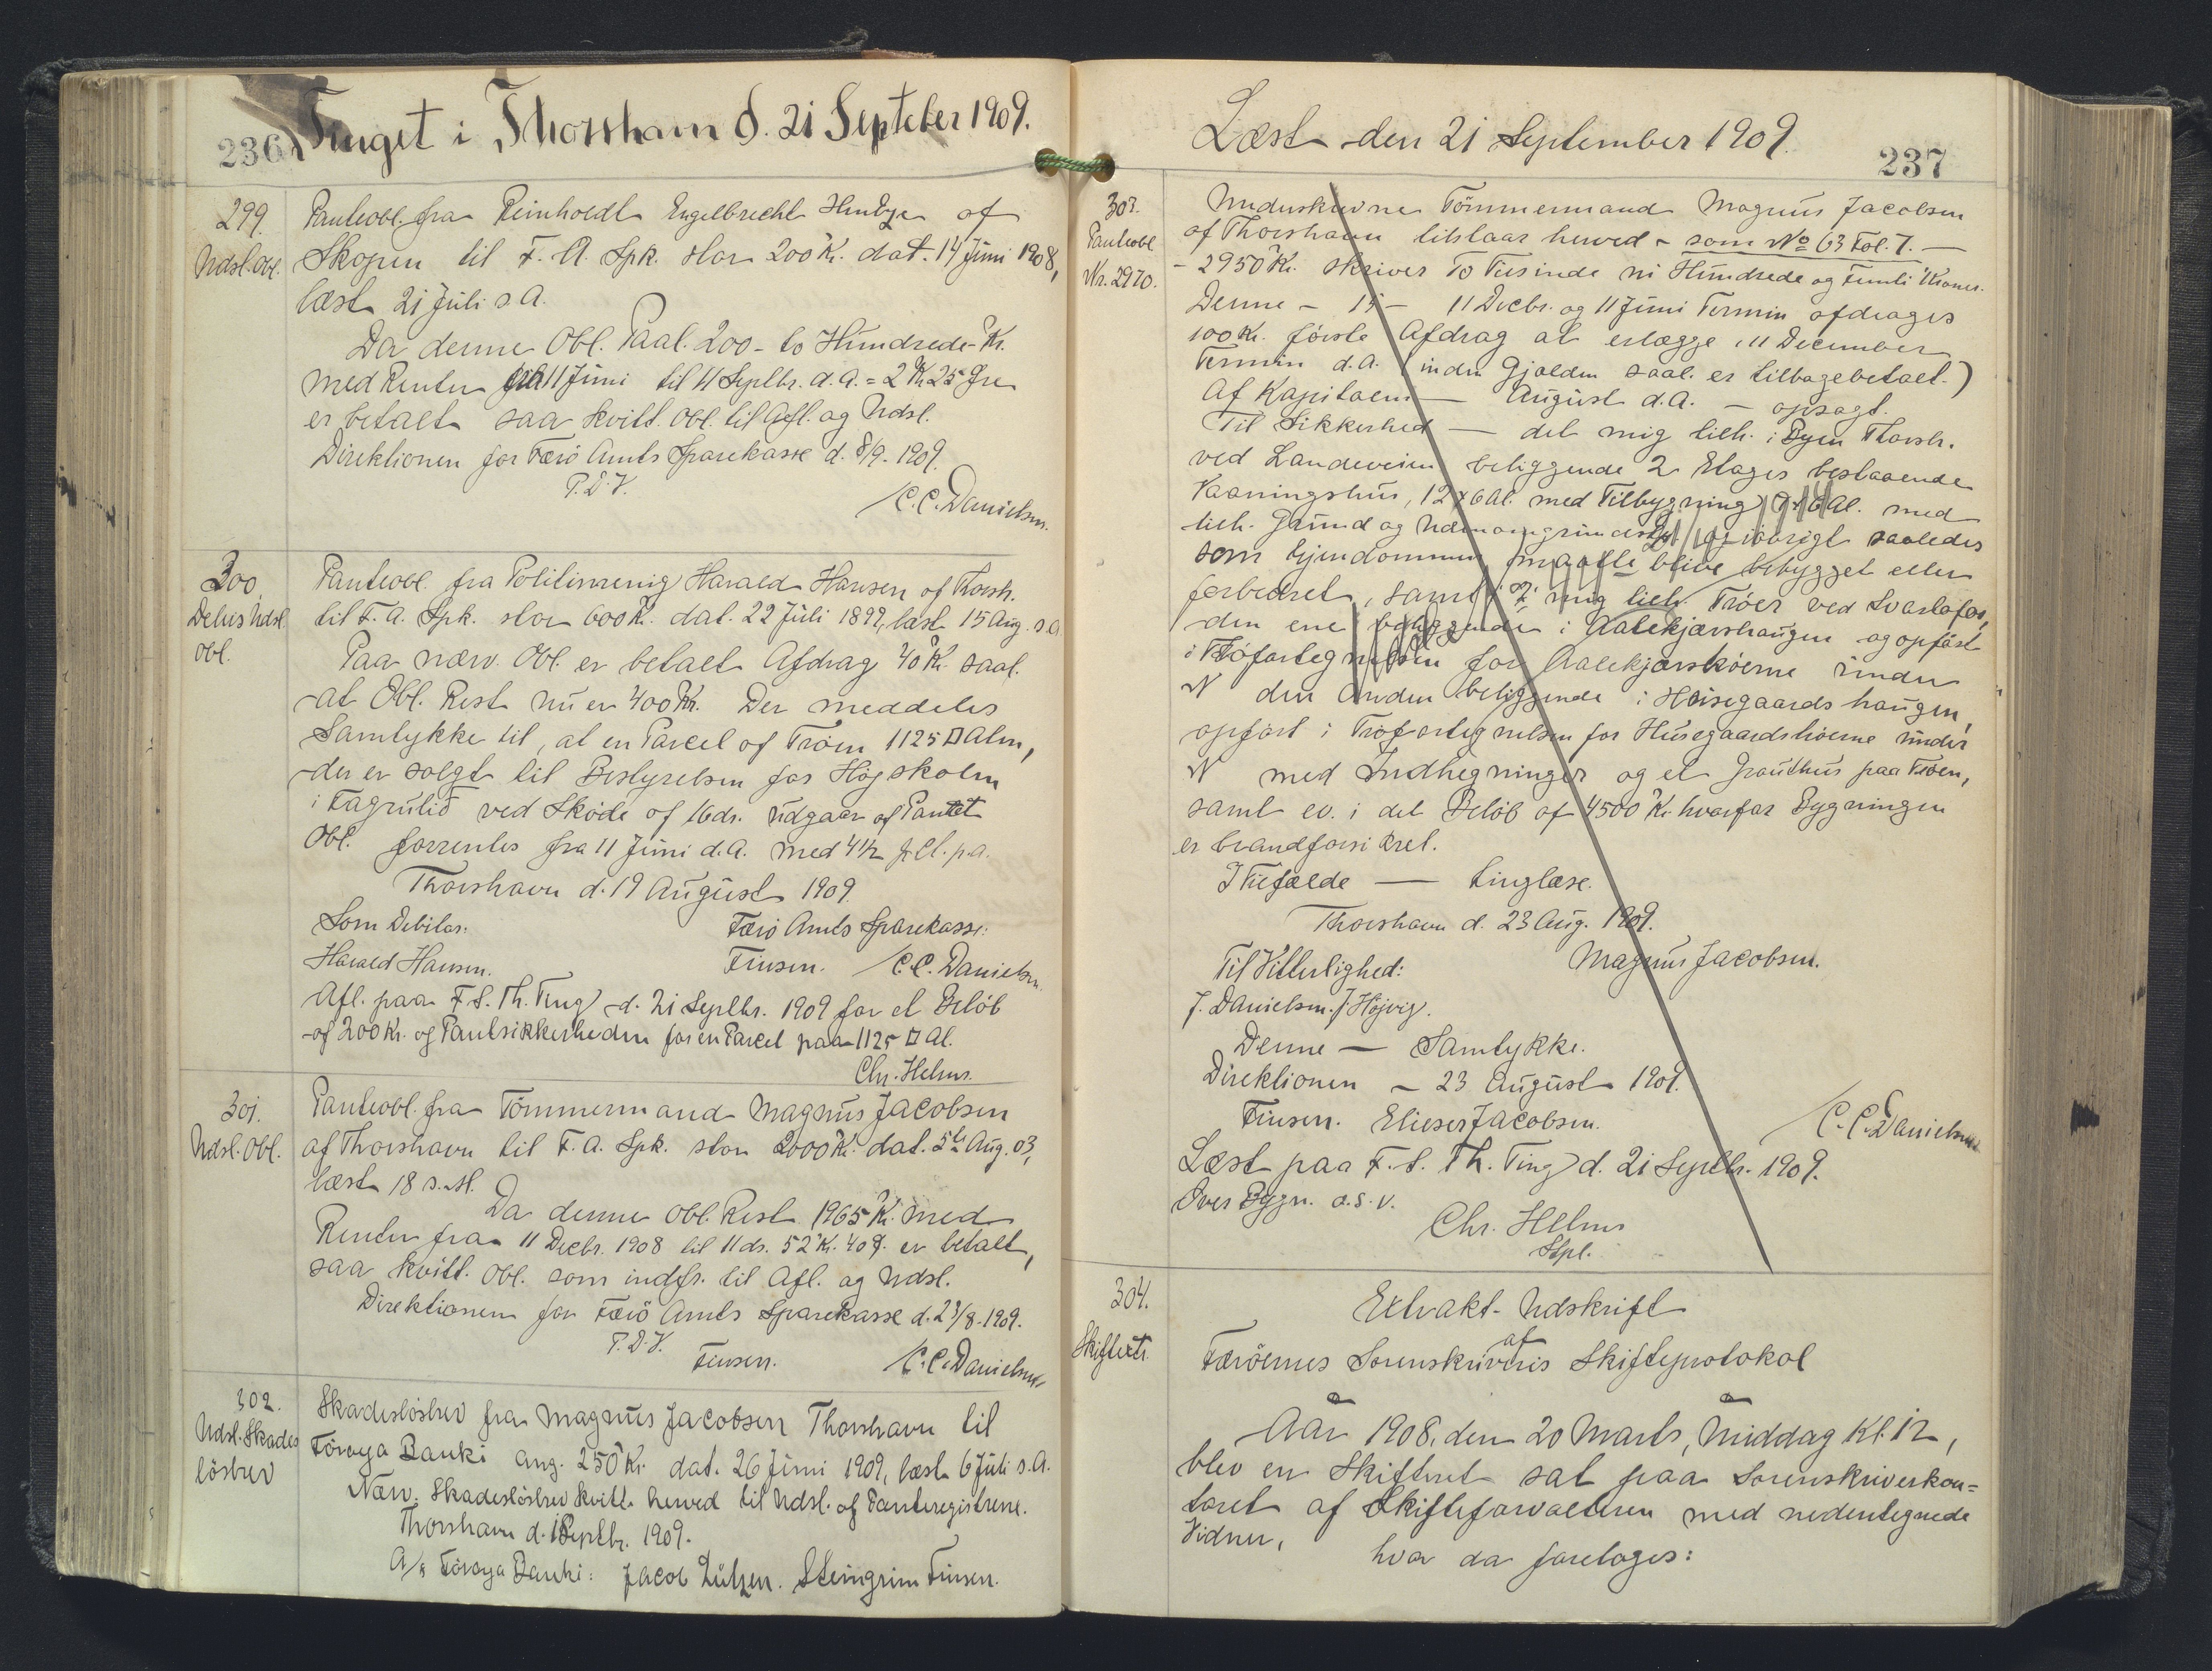 236
Tinget i Thorshavn d. 21 Septeber 1909.
299.
Udsl. Obl.
Panteobl. fra Reinholdt Engelbrecht Henbye af
Skopen til F. A. Spk. stor 200 Kr. dat. 14 Juni 1908,
læst 21 Juli s. A.
Da denne Obl. Paal. 200 - to Hundrede - Kr.
med Renter fra 11 Juni til 11 Septbr. d. A. = 2 Kr 25 Øre
er betalt saa kvitt. Obl. til Afl. og Udsl.
Direktionen for Færö Amts Sparekasse d. 8/9. 1909.
P. D. V.
C. C. Danielsen.
300.
Delvis Udsl.
Obl.
Panteobl. fra Politimenig Harald Hansen af Thorsh.
til F. A. Spk. stor 600 Kr. dat. 22 Juli 1899, læst 15 Aug. s. A.
Paa nærv. Obl. er betalt Afdrag 40 Kr. saal.
at Obl. Rest nu er 400 Kr. Der meddeles
Samtykke til, at en Parcel af Tröen 1125 □ Alen,
der er solgt til Bestyrelsen for Högskolen
i Fagrulid ved Sköde af 16 ds. udgaar af Pantet
Obl. forrentes fra 11 Juni d. A. med 4 1/2 pCt. p. a.
Thorshavn d. 19 August 1909.
Som Debitor: Færö Amts Sparekasse:
Harald Hansen. Finsen. C. C. Danielsen.
Afl. paa F. S. Th. Ting d. 21 Septbr. 1909 for et Belöb
af 200 Kr. og Pantsikkerheden for en Parcel paa 1125 □ Al.
Chr. Helms.
301.
Udsl. Obl.
Panteobl. fra Tömmermand Magnus Jacobsen
af Thorshavn til F. A. Spk. stor 2000 Kr. dat. 5te Aug. 03,
læst 18 s. M.
Da denne Obl. Rest 1965 Kr. med
Renter fra 11 Decbr. 1908 til 11 ds. 52 Kr. 40 Ø. er betalt,
saa kvitt. Obl. som indfr. til Afl. og Udsl.
Direktionen for Færö Amts Sparekasse d. 23/8. 1909.
P. D. V.
Finsen. C. C. Danielsen
302.
Udsl. Skades
lösbrev
Skadeslösbrev fra Magnus Jacobsen Thorshavn til
Föroya Banki ang. 250 Kr. dat. 26 Juni 1909, læst 6 Juli s. A.
Nærv. Skadeslösbrev kvitt. herved til Udsl. af Panteregistrene.
Thorshavn d. 1 Septbr. 1909.
A/s Föroya Banki: Jacob Lützen. Steingrim Finsen.
Læst den 21 September 1909.
237
303.
Panteobl
Nr. 2970.
Unduskrevne Tömmermand Magnus Jacobsen
af Thorshavn tilstaar herved - som No 63 Fol. 7. -
- 2950 Kr. skriver To Tusinde ni Hundrede og Femti Kroner.
Denne - 15 - 11 Decbr. og 11 Juni Termin afdrages
100 Kr. förste Afdrag at erlægge i 11 December
Termin d. A. (inden Gjælden saal. er tilbagebetalt.)
Af Kapitalen - August d. A. - opsagt.
Til Sikkerhed - det mig tilh. i Byen Thorsh.
ved Landeveien beliggende 2 Etages bestaaende
Vaaningshus, 12 x 6 Al. med Tilbygning Al. med
tilh. Grund og og iövrigt saaledes
som Ejendommen maatte blive bebygget eller
forbedret, samt i 2 mig tilh. Tröer ved Svartafos,
den ene beliggende i Aalekjærshaugen og opfört
i Tröfortegnelsen for Aalekjærströerne under
N den anden beliggende i Husegaards haugen,
opfört i Tröfortegnelsen for Husegaardströerne under
N med Indhegninger og et Grauthus paa Tröen,
samt ev. i det Belöb af 4500 Kr. hvorfor Bygningen
er brandforsikret.
I Tilfælde - tinglæse.
Thorshavn d. 23 Aug. 1909.
Til Vitterlighed: Magnus Jacobsen.
J. Danielsen. J. Höjvig.
Denne - Samtykke.
Direktionen - 23 August 1909.
Finsen. Elieser Jacobsen. C. C. Danielsen
Læst paa F. S. Th. Ting d. 21 Septbr. 1909.
Över Bygn. o. s. v.
Chr. Helms
Stpl.
304.
Skifteextr.
Extrakt-Udskrift
af
Færöernes Sorenskriveris Skifteprotokol
Aar 1908, den 20 Marts, Middag Kl. 12,
blev en Skifteret sat paa Sorenskriverkon=
toret af Skifteforvalteren med nedentegnede
Vidner,
hvor da foretoges: